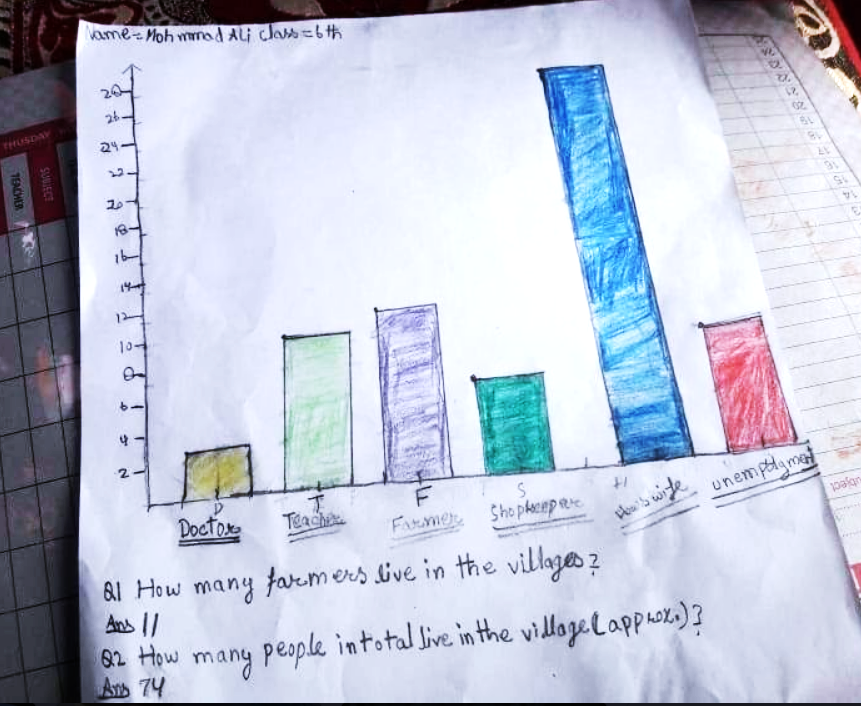 Name = Mohmmad Ali class = 6th
28
26
24
22
20
18
16
14
12
10
8
6
4
2
D T F S H
Doctor Teacher Farmer Shopkeeper unemploymet
Q1 How many farmers live in the villages?
Ans 11
Q2 How many people in total live in the village (approx.)?
Ans 74
THUSDAY
SUBJECT
TEACHER
25
24
23
22
21
20
19
18
17
16
15
14
13